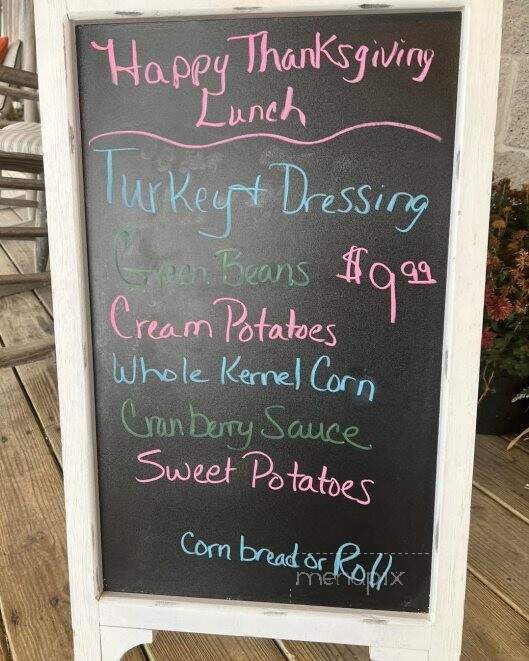 Happy Thanksgiving
Lunch
Turkey + Dressing
Green Beans $9.99
Cream Potatoes
Whole Kernel Corn
Cranberry Sauce
Sweet Potatoes
Corn bread or Roll
menupix